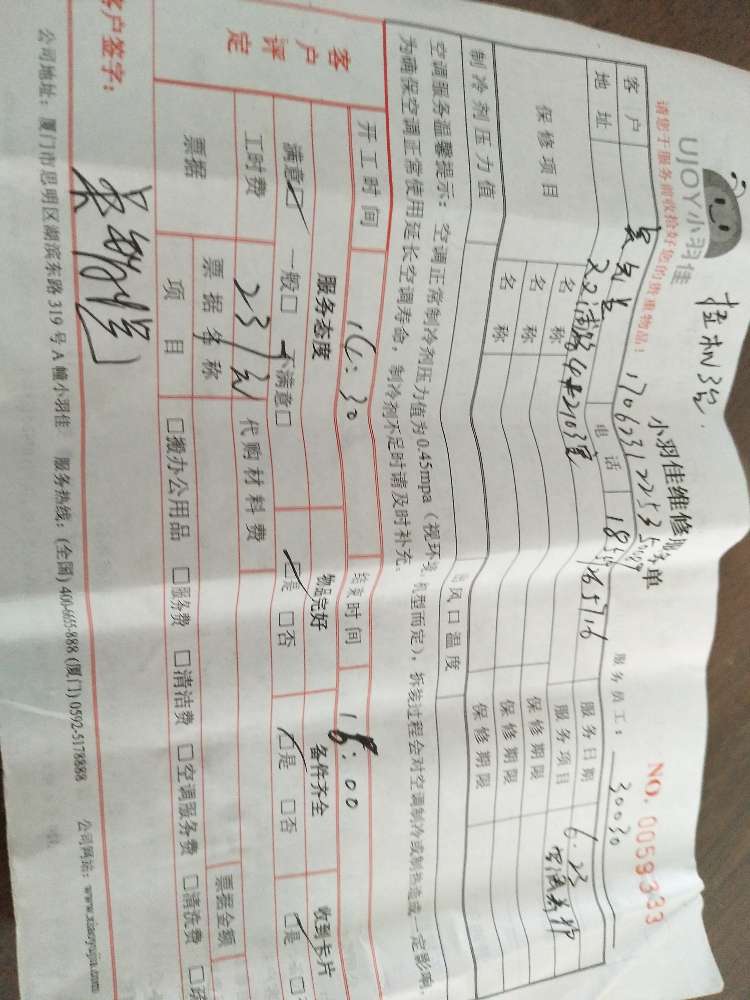 UJOY小羽佳
小羽佳维修服务单
NO. 0059333
请您于服务前收拾好您的贵重物品！
服务员工： 30030
客户
电话
服务日期 6.23
地址
服务项目
保修项目
名称
保修期限
名称
保修期限
名称
保修期限
制冷剂压力值
出风口温度
空调服务温馨提示：空调正常制冷剂压力值为0.45mpa（视环境、机型而定），拆装过程会对空调制冷或制热造成一定影响，
为确保空调正常使用延长空调寿命，制冷剂不足时请及时补充。
开工时间 16:30 结束时间 18:00
客户评定
服务态度 物品完好 备件齐全 收到卡片
满意☑ 一般□ 不满意□ ☑是 □否 ☑是 □否 ☑是
工时费 231元 代购材料费
票据 票据名称 票据金额
项目 □搬办公用品 □服务费 □清洁费 □空调服务费 □清洗费
客户签字：
公司地址：厦门市思明区湖滨东路319号A幢小羽佳 服务热线：(全国) 400-665-888 (厦门) 0592-5178888 公司网站：www.xiaoyujia.com